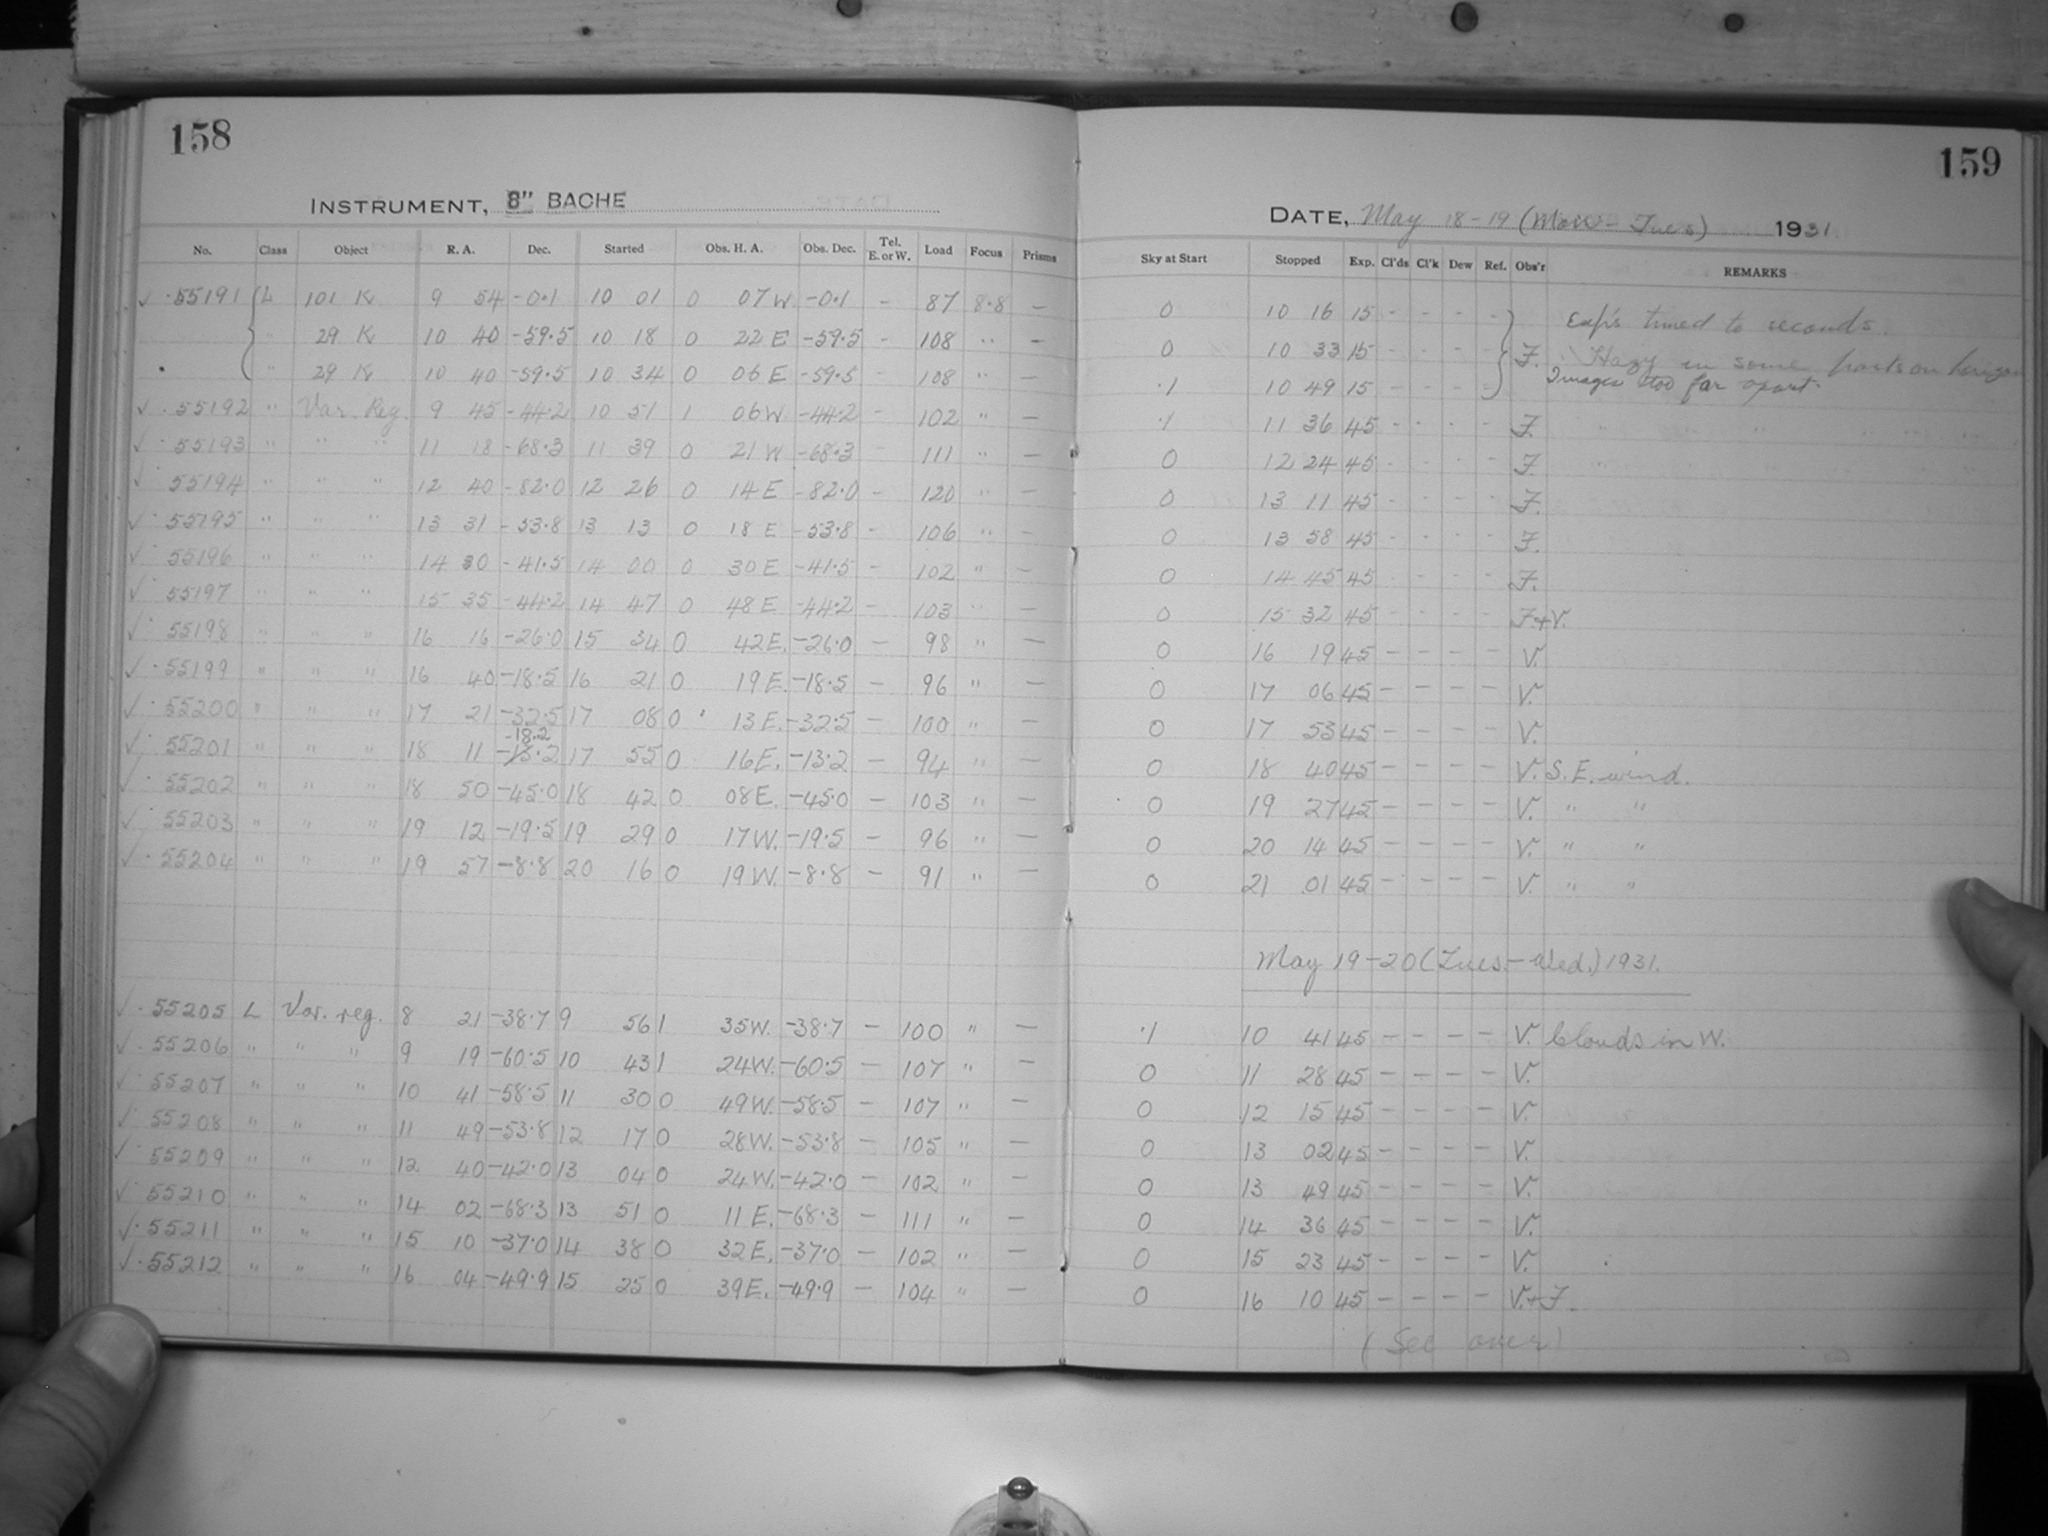 158
INSTRUMENT, 8" BACHE
No. Class Object R. A. Dec. Started Obs. H. A. Obs. Dec. Tel. E. or W. Load Focus Prisms
✓ · 55191 L 101 K 9 54 -0.1 10 01 0 07 W -0.1 - 87 8.8 -
" 29 K 10 40 -59.5 10 18 0 22 E -59.5 - 108 " -
" 29 K 10 40 -59.5 10 34 0 06 E -59.5 - 108 " -
✓ · 55192 " Var. Reg. 9 45 -44.2 10 51 1 06 W -44.2 - 102 " -
✓ · 55193 " " " 11 18 -68.3 11 39 0 21 W -68.3 - 111 " -
✓ · 55194 " " " 12 40 -82.0 12 26 0 14 E -82.0 - 120 " -
✓ · 55195 " " " 13 31 -53.8 13 13 0 18 E -53.8 - 106 " -
✓ · 55196 " " " 14 30 -41.5 14 00 0 30 E -41.5 - 102 " -
✓ · 55197 " " " 15 35 -44.2 14 47 0 48 E -44.2 - 103 " -
✓ · 55198 " " " 16 16 -26.0 15 34 0 42 E. -26.0 - 98 " -
✓ · 55199 " " " 16 40 -18.5 16 21 0 19 E. -18.5 - 96 " -
✓ · 55200 " " " 17 21 -32.5 17 08 0 13 E. -32.5 - 100 " -
-18.2
✓ · 55201 " " " 18 11 -13.2 17 55 0 16 E. -13.2 - 94 " -
✓ · 55202 " " " 18 50 -45.0 18 42 0 08 E. -45.0 - 103 " -
✓ · 55203 " " " 19 12 -19.5 19 29 0 17 W. -19.5 - 96 " -
✓ · 55204 " " " 19 57 -8.8 20 16 0 19 W. -8.8 - 91 " -
✓ · 55205 L Var. reg. 8 21 -38.7 9 56 1 35 W. -38.7 - 100 " -
✓ · 55206 " " " 9 19 -60.5 10 43 1 24 W. -60.5 - 107 " -
✓ · 55207 " " " 10 41 -58.5 11 30 0 49 W. -58.5 - 107 " -
✓ · 55208 " " " 11 49 -53.8 12 17 0 28 W. -53.8 - 105 " -
✓ · 55209 " " " 12 40 -42.0 13 04 0 24 W. -42.0 - 102 " -
✓ · 55210 " " " 14 02 -68.3 13 51 0 11 E. -68.3 - 111 " -
✓ · 55211 " " " 15 10 -37.0 14 38 0 32 E. -37.0 - 102 " -
✓ · 55212 " " " 16 04 -49.9 15 25 0 39 E. -49.9 - 104 " -
159
DATE, May 18-19 (Mon - Tues) 1931
Sky at Start Stopped Exp. Cl'ds Cl'k Dew Ref. Obs'r REMARKS
0 10 16 15 - - - - Exp's timed to seconds.
0 10 33 15 - - - - F. Hazy in some parts on horizon
.1 10 49 15 - - - - Images too far apart.
.1 11 36 45 - - - - F.
0 12 24 45 - - - - F.
0 13 11 45 - - - - F.
0 13 58 45 - - - - F.
0 14 45 45 - - - - F.
0 15 32 45 - - - - F+V.
0 16 19 45 - - - - V.
0 17 06 45 - - - - V.
0 17 53 45 - - - - V.
0 18 40 45 - - - - V. S.E. wind.
0 19 27 45 - - - - V. " "
0 20 14 45 - - - - V. " "
0 21 01 45 - - - - V. " "
May 19-20 (Tues. - Wed.) 1931.
.1 10 41 45 - - - - V. Clouds in W.
0 11 28 45 - - - - V.
0 12 15 45 - - - - V.
0 13 02 45 - - - - V.
0 13 49 45 - - - - V.
0 14 36 45 - - - - V.
0 15 23 45 - - - - V.
0 16 10 45 - - - - V.+F.
(See over)